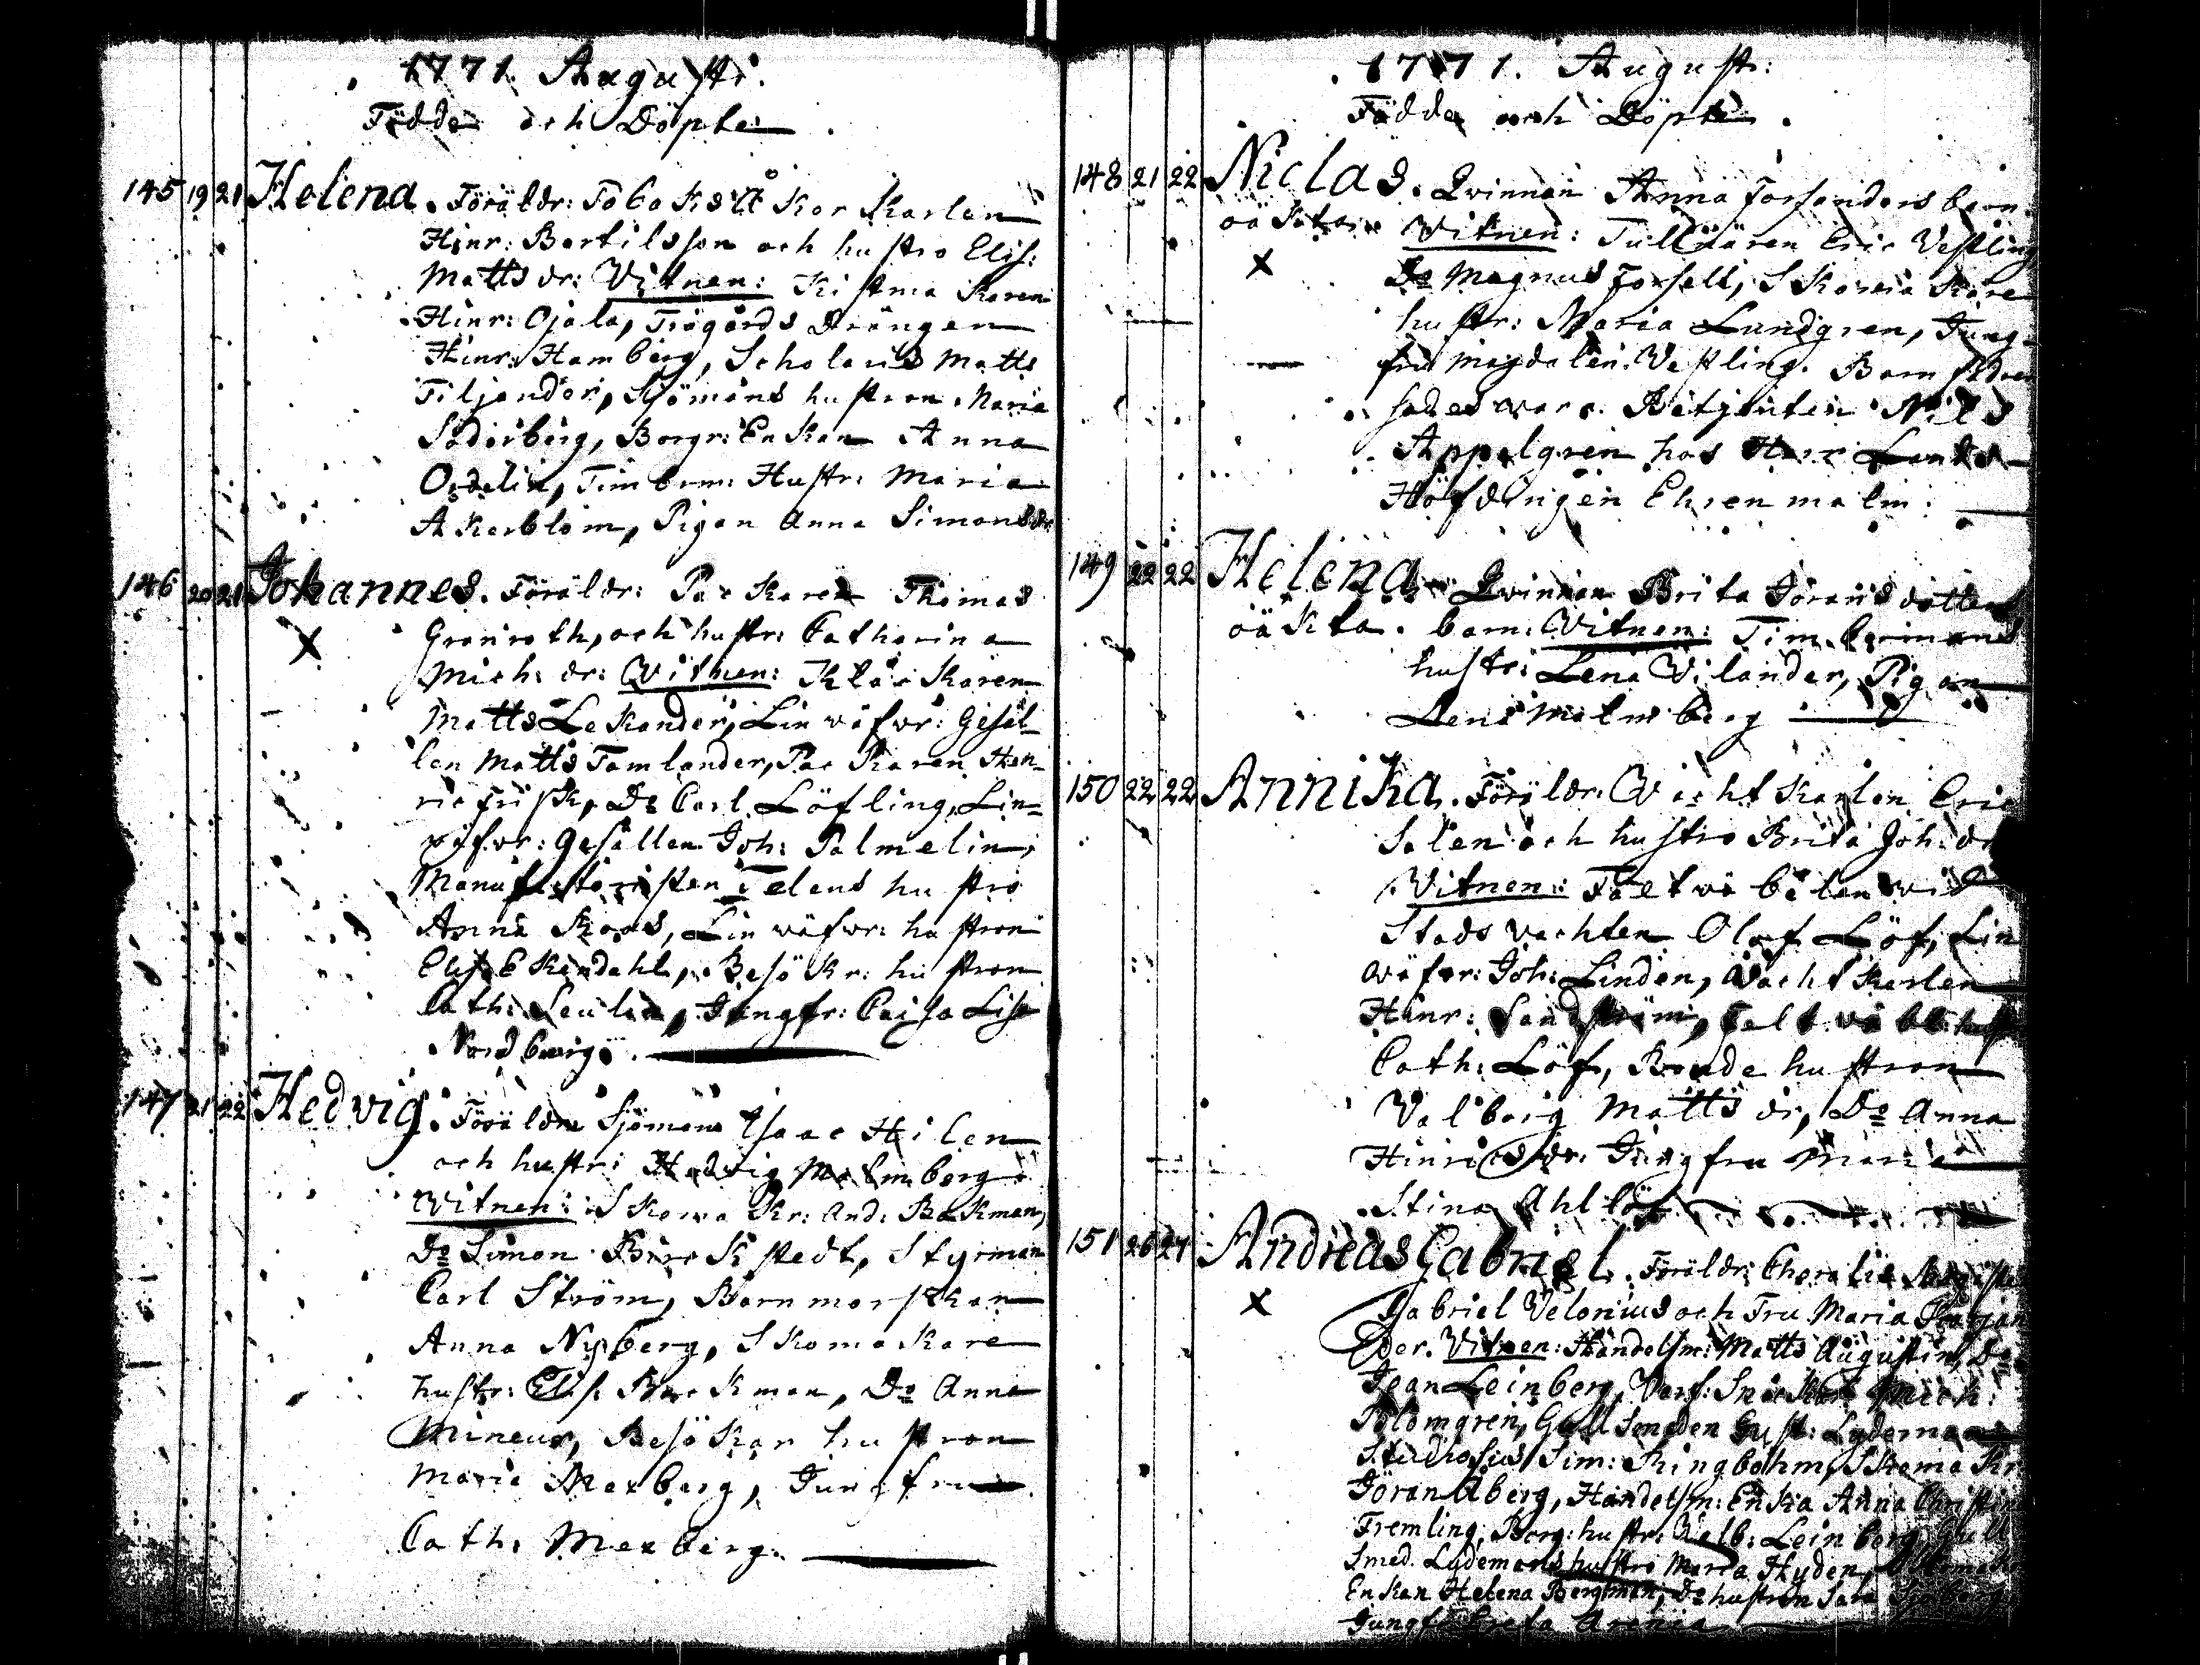 1771 Augusti.
Födde och Döpte
145 19 21 Helena. Föräldr: Tobaks Karlen
Hinr: Bertilsson och hustro Elis:
Matts dr: Vitnen: Kistma karen
Hinr: Ojala, Trägårds Drängen
Hinr: Hamberg, Scholaris Matts
Tiljander, Sjömans hustron Maria
Söderberg, Borgr: Enkan Anna
Ordelin, Timberm: Hustr: Maria
Akerblom, Pigan Anna Simonsdr
146 20 21 Johannes. Föräldr: Packaren Thomas
X Granroth, och hustr: Catharina
Mich: dr: Vitnen: Klåckaren
Matts Lekander, Linwäfvr: Gesäl-
len Matts Tamlander, Packaren Hen-
ric Frisk, Do Carl Löfling, Lin-
wäfvr: Gesällen Joh: Palmelin,
Manufactoristen Telens hustro
Anna Koos, Linwäfvr: hustron
Elis Ekendahl, Besökr: hustron
Cath: Seulin, Jungfr: Caisa Lisa
Nordberg.
147 21 22 Hedvig. Föräldra Sjöman Isaac Hilen
och hustr: Hedvig Malmberg.
Vitnen: Skomakr: And: Backman,
Do Simon Birckstedt, Styrman
Carl Ström, Barnmorskan
Anna Nyberg, Skomakare
hustr: Elis: Backman, Do Anna
Mineur, Besökar hustron
Maria Mexberg, Jungfru
Cath: Mexberg.
1771. August:
Födde och Döpte
148 21 22 Niclas. Qvinnan Anna Forsanders barn
oäkta. Vitnen: Tullnären Eric Vestling
X Do Magnus Forsell, Skomakare
hustr: Maria Lundgren, Jung-
fru Magdalen: Vestling. Barnfadren
sades vara Betjenten Nils
Appelgren hos Herr Lands-
Höfdingen Ehrenmalm:
149 22 22 Helena. Qvinnan Brita Jöransdotters
oäkta. barn: Vitnen: Timbermans
hustr: Lena Vilander, Pigan
Lena Malmberg
150 22 22 Annika. Föräldr: Vacht Karlen Eric
Salen och hustro Brita Joh: dr
Vitnen: Faltwäbelen wid
Stads vachten Olof Löf, Lin
wäfvr: Joh: Linden, Vacht Karlen
Hinr: Sandström, Faltwäbl: hust
Cath: Löf, Bonde hustron
Valborg Matts dr, Do Anna
Hinrics dr. Jungfru Maria
Stina Ahllöf
151 26 27 Andreas Gabriel. Föräldr: Choralis Magister
X Gabriel Velonius och Fru Maria Tarjan
der. Vitnen: Handelsm: Matts Augustin, Do
Jean Leinberg, Varf: Snickar Mich:
Holmgren, Gullsmeden Gust: Lydeman
Studiosus Sim: Ringbohm, Skomakr
Jöran Åberg, Handelsm: Enka Anna Christina
Fremling, Borg: hustr: Valb: Leinberg, Gull
smed. Lydemans hustro Maria Hyden,
Enkan Helena Bergman, Do hustron Sara
Jungf: Greta Arenia